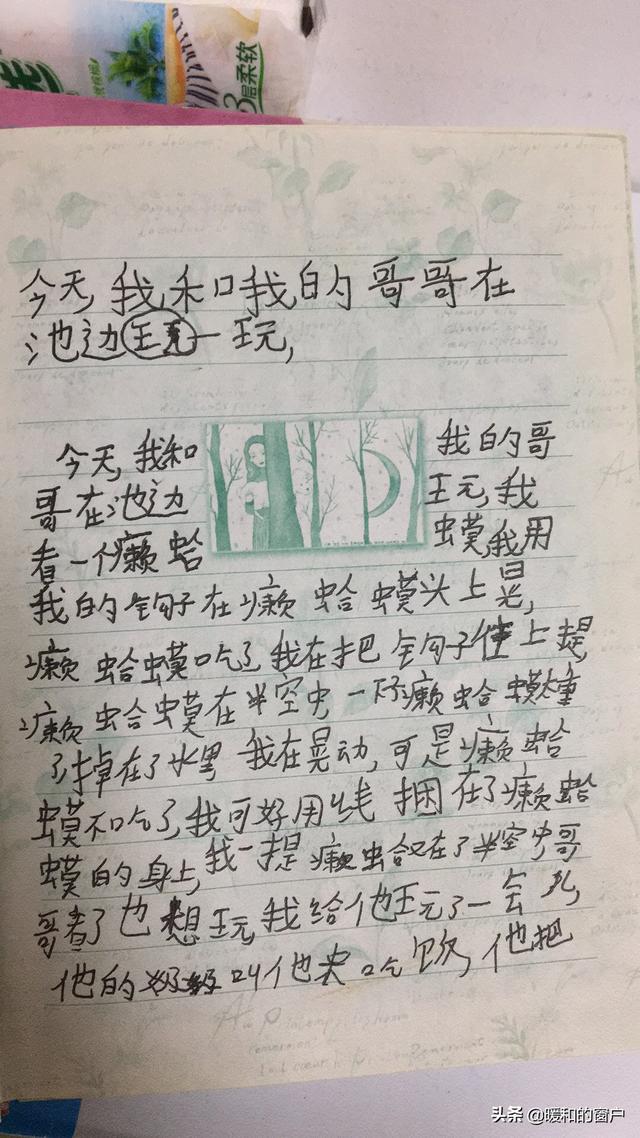 3层柔软
今天,我和我的哥哥在
池边一玩,
今天,我和我的哥
哥在池边玩,我
看一个癞蛤蟆,我用
我的钩子在癞蛤蟆头上晃,
癞蛤蟆吃了,我在把钩子往上提,
癞蛤蟆在半空中,一下癞蛤蟆太重
了,掉在了水里 我在晃动,可是癞蛤
蟆不吃了,我可好用线捆在了癞蛤
蟆的身上,我一提癞蛤又在了半空中,哥
哥看了也想玩,我给他玩了一会儿,
他的叫他去吃饭,他把
头条 @暖和的窗户